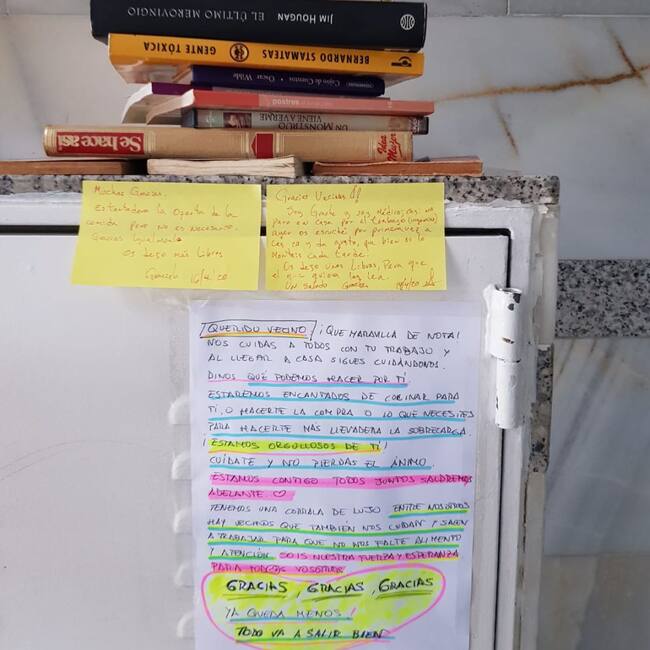 EL ÚLTIMO MEROVINGIO JIM HOUGAN
GENTE TÓXICA BERNARDO STAMATEAS
Cajas de Cuentos • Oscar Wilde
postres
UN MONSTRUO
VIENE A VERME
Se hace así Idea Mujer
Muchas Gracias.
la Oferta de la
comida pero no es necesario.
Gracias Igualmente
Os dejo más Libros
Gracias Vecinos!!
para en casa por el trabajo
ayer os escuché por primera vez a
las 20 y da gusto, que bien si lo
cada tarde.
Os dejo unos Libros, Para que
el que quiera los lea.
Un saludo Gracias
QUERIDO VECINO, ¡QUE MARAVILLA DE NOTA!
NOS CUIDAS A TODOS CON TU TRABAJO Y
AL LLEGAR A CASA SIGUES CUIDÁNDONOS.
DINOS QUÉ PODEMOS HACER POR TÍ.
ESTAREMOS ENCANTADOS DE COCINAR PARA
TÍ, O HACERTE LA COMPRA O LO QUE NECESITES
PARA HACERTE MÁS LLEVADERA LA SOBRECARGA.
¡ESTAMOS ORGULLOSOS DE TÍ!
CUÍDATE Y NO PIERDAS EL ÁNIMO.
ESTAMOS CONTIGO TODOS JUNTOS SALDREMOS
ADELANTE. ♡
TENEMOS UNA CORRALA DE LUJO ENTRE NOSOTROS
HAY VECINOS QUE TAMBIÉN NOS CUIDAN Y SALEN
A TRABAJAR PARA QUE NO NOS FALTE ALIMENTO
Y ATENCIÓN SOIS NUESTRA FUERZA Y ESPERANZA
PARA TODOS VOSOTROS
GRACIAS, GRACIAS, GRACIAS
YA QUEDA MENOS!
TODO VA A SALIR BIEN